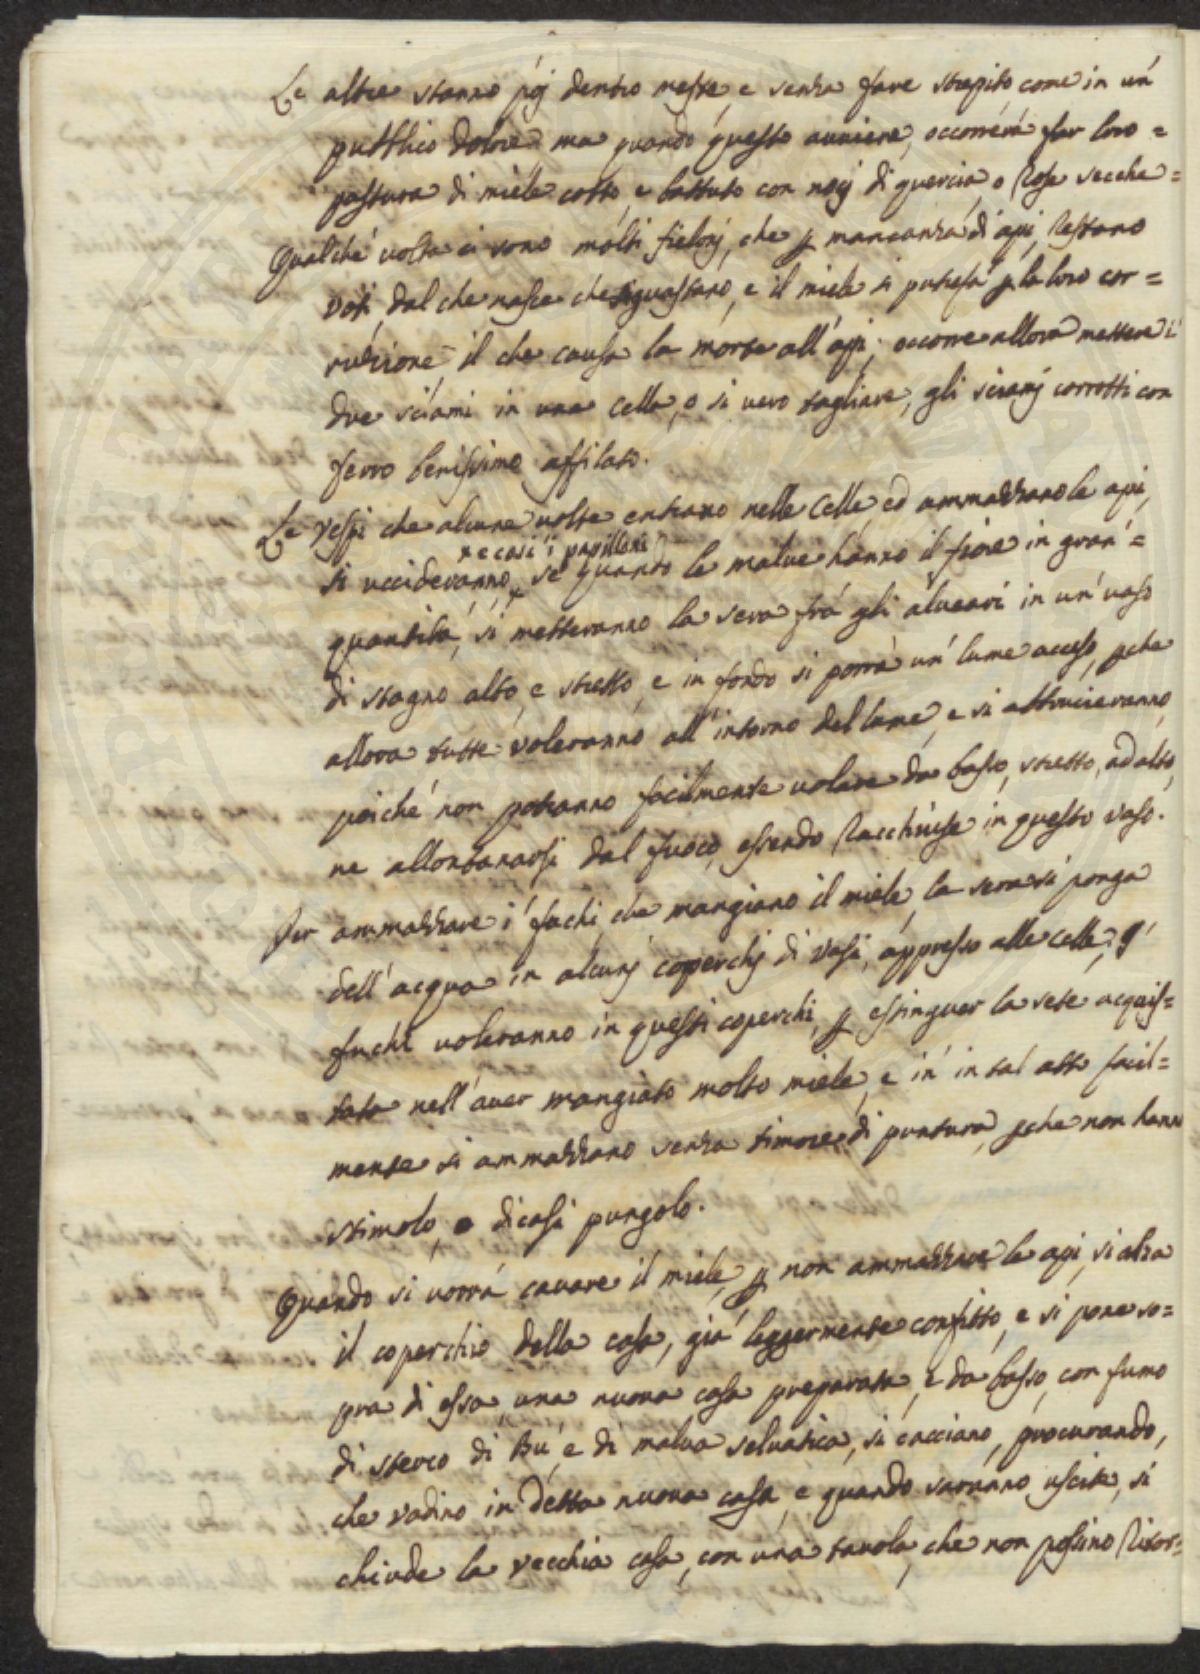 Le altre stanno poj dentro meste, e senza fare strepito, come in un'
publico dolore: ma quando questo auuiene, occorrerà far loro =
pastura di miele cotto, e battuto con nocj di quercia, o Rose secche =
Qualche uolta ci sono molti fielonj, che p mancanza di api, Restano
voti, dal che nasce che si guastano, e il miele si putrefà p la loro cor=
ruzzione = il che causa la morte all'api; occorre allora mettere i
due sciami in una cella, o si vero tagliare, gli sciamj corrotti con
ferro benissimo affilato.
Le Vespi che alcune uolte entrano nelle Celle, ed ammazzano le api,
× e così i papilloni
si uccideranno × se quando le malue hanno il fiore in gran'=
quantità, si metteranno la sera frà gli alueari in un' uaso
di stagno alto, e stretto, e in fondo si porrà un' lume acceso, pche
allora tutte voleranno all'intorno del lume, e si abbrucieranno,
poiché non potranno facilmente uolare da basso, stretto, ad alto,
ne allontanarsi dal fuoco, essendo Racchiuse in questo vaso.
Per ammazzare i fuchi che mangiano il miele, la sera si ponga
dell'acqua in alcunj coperchj di Vasi, appresso alle celle, q'
fuchi uoleranno in questi coperchi, p estinguer la sete acquis=
tata nell'auer mangiato molto miele, e in' in tal atto facil=
mente si ammazzano senza timore di puntura, pche non hanno
stimolo, o dicasi pungolo.
Quando si uorrà cauare il miele, p non ammazzare le api, si alza
il coperchio della casa, già leggermente confitto, e si pone so=
pra di essa, una nuoua casa preparata, e da basso, con fumo
di sterco di Bù, e di malua seluatica, si cacciano, procurando,
che vadino in detta nuoua casa, e quando saranno uscite, si
chiude la vecchia casa, con una tauola, che non possino Ritor=